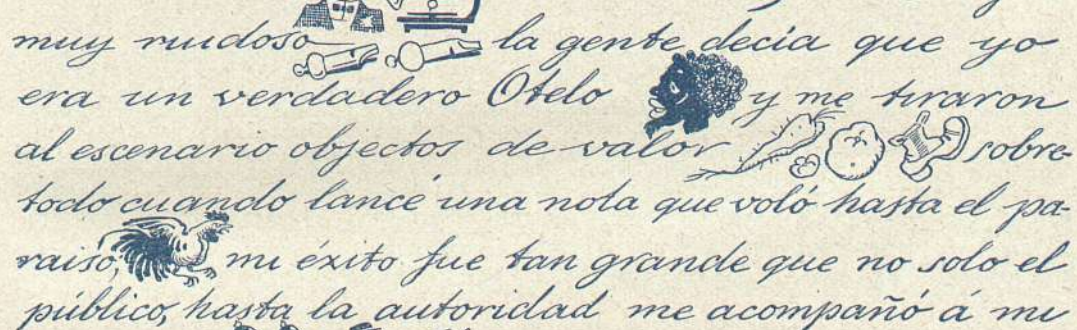 muy ruidoso la gente decia que yo
era un verdadero Otelo y me tiraron
al escenario objectos de valor sobre-
todo cuando lancé una nota que voló hasta el pa-
raiso, mi éxito fue tan grande que no solo el
público, hasta la autoridad me acompañó á mi